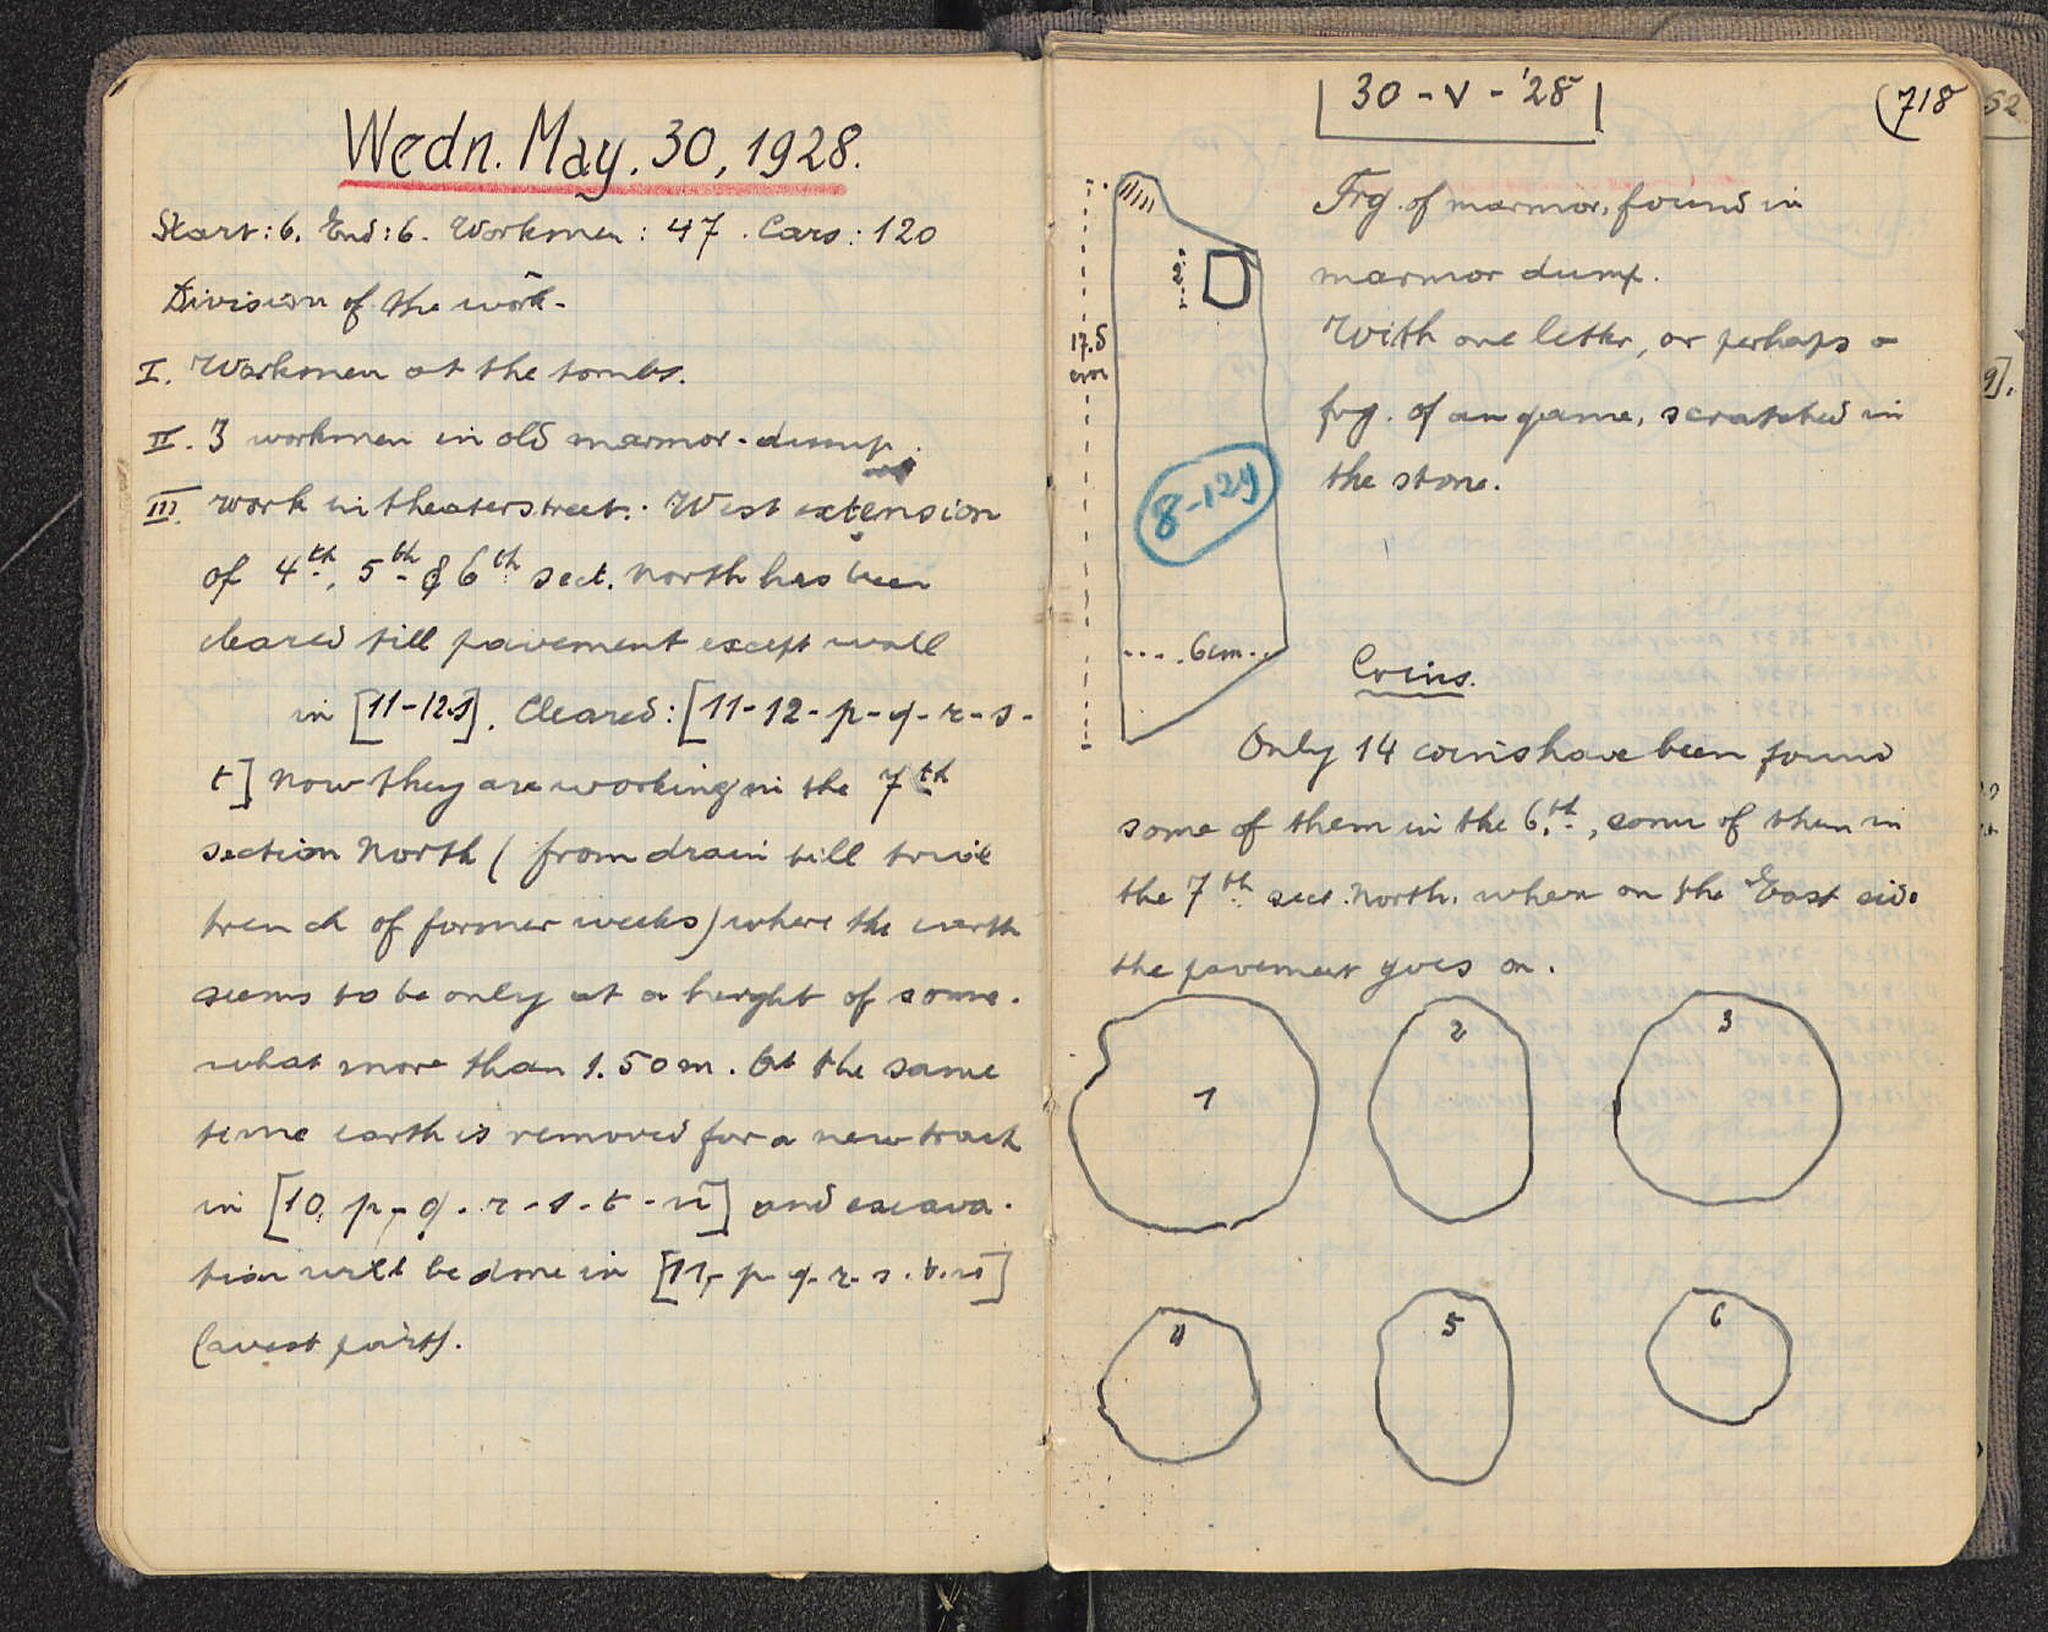 Wedn. May. 30, 1928.
Start: 6. End: 6. Workmen: 47. Cars: 120
Division of the work.
I. Workmen at the tombs.
II. 3 workmen in old marmor-dump.
III. work in theaterstreet: West extension
of 4th, 5th & 6th sect. North has been
cleared till pavement except wall
in [11-12.s]. Cleared: [11-12-p-q-r-s-
t] Now they are working in the 7th
section North (from drain till
trench of former weeks) where the earth
seems to be only at a height of some-
what more than 1.50 m. At the same
time earth is removed for a new track
in [10, p-q-r-s-t-u] and excava-
tion will be done in [11, p-q-r-s.t.u]
(west part).
30-V-'28
718
52
Frg. of marmor, found in
marmor dump.
With one letter, or perhaps a
frg. of an game, scratched in
the stone.
2
17.5
cm
8-129
6cm
Coins.
Only 14 coins have been found
some of them in the 6th, some of them in
the 7th sect. North. when on the East side
the pavement goes on.
1
2
3
4
5
6